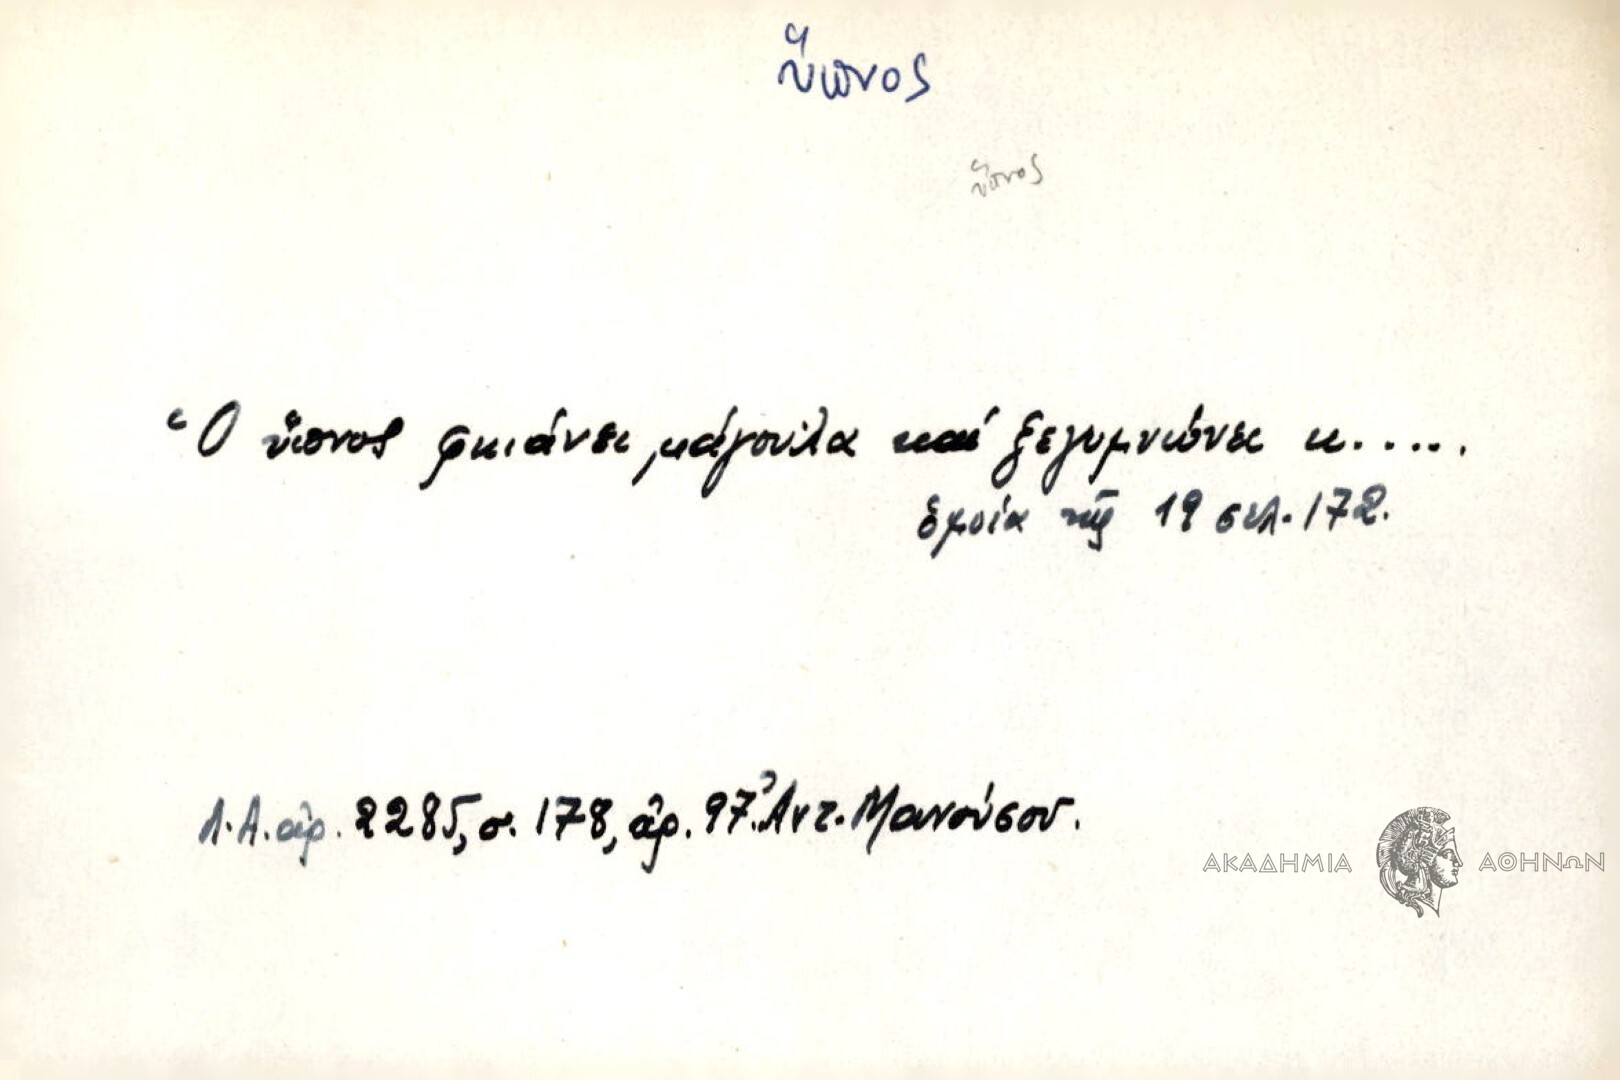 ὕπνος
ὕπνος
Ὁ ὕπνος φκιάνει μάγουλα καί ξεγυμνώνει κ.....
ὁμοία τῆς 19 σελ. 172.
Λ.Α. ἀρ. 2285, σ. 178, ἀρ. 97. Ἀντ. Μανούσου.
ΑΚΑΔΗΜΙΑ ΑΘΗΝΩΝ